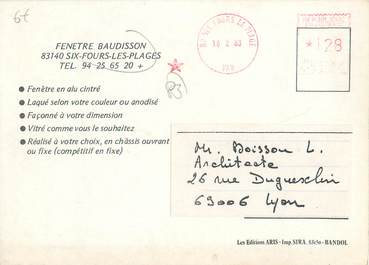 6t
FENETRE BAUDISSON
83140 SIX-FOURS-LES-PLAGES
TEL. 94 25 65 20 +
83
● Fenêtre en alu cintré
● Laqué selon votre couleur ou anodisé
● Façonné à votre dimension
● Vitré comme vous le souhaitez
● Réalisé à votre choix, en châssis ouvrant
ou fixe (compétitif en fixe)
SIX FOURS LES PLAGES
VAR
*128
Mr. Boisson L.
Architecte
26 rue Duguesclin
69006 Lyon
Les Editions ARIS - Imp. SIRA - BANDOL